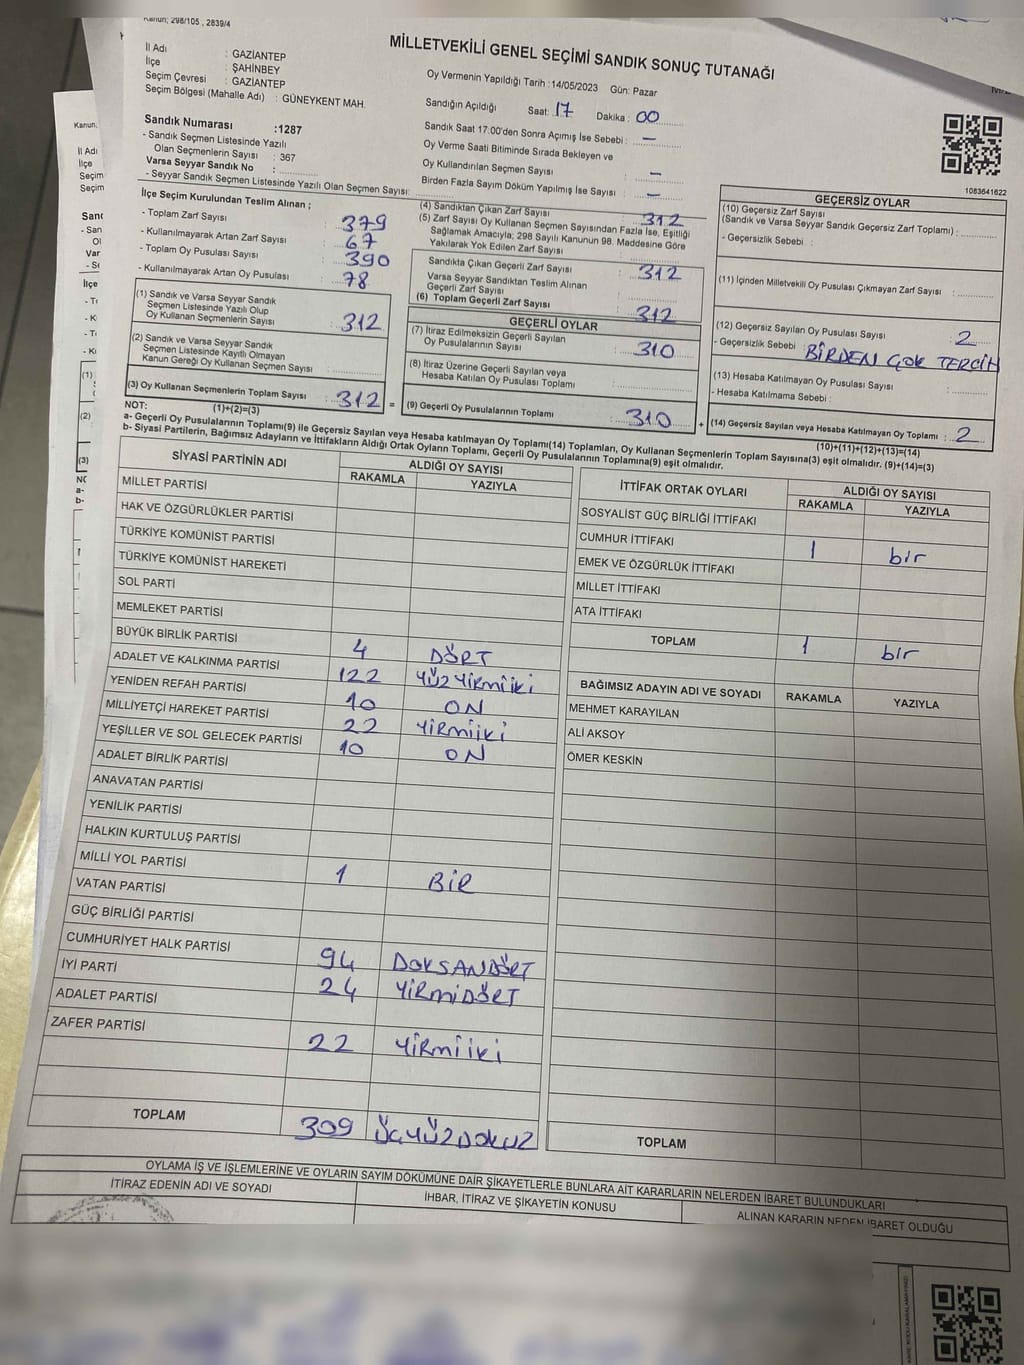 Kanun; 298/105 , 2839/4
MİLLETVEKİLİ GENEL SEÇİMİ SANDIK SONUÇ TUTANAĞI
İl Adı : GAZİANTEP
İlçe : ŞAHİNBEY
Seçim Çevresi : GAZİANTEP
Seçim Bölgesi (Mahalle Adı) : GÜNEYKENT MAH.
Oy Vermenin Yapıldığı Tarih :14/05/2023 Gün: Pazar
Sandığın Açıldığı Saat: 17 Dakika : 00
Sandık Saat 17:00'den Sonra Açımış İse Sebebi : —
Oy Verme Saati Bitiminde Sırada Bekleyen ve
Oy Kullandırılan Seçmen Sayısı : —
Birden Fazla Sayım Döküm Yapılmış İse Sayısı : —
Sandık Numarası :1287
- Sandık Seçmen Listesinde Yazılı
Olan Seçmenlerin Sayısı : 367
Varsa Seyyar Sandık No :
- Seyyar Sandık Seçmen Listesinde Yazılı Olan Seçmen Sayısı:
1083641622
İlçe Seçim Kurulundan Teslim Alınan ;
- Toplam Zarf Sayısı : 379
- Kullanılmayarak Artan Zarf Sayısı : 67
- Toplam Oy Pusulası Sayısı : 390
- Kullanılmayarak Artan Oy Pusulası : 78
(1) Sandık ve Varsa Seyyar Sandık
Seçmen Listesinde Yazılı Olup
Oy Kullanan Seçmenlerin Sayısı : 312
(2) Sandık ve Varsa Seyyar Sandık
Seçmen Listesinde Kayıtlı Olmayan
Kanun Gereği Oy Kullanan Seçmen Sayısı :
(3) Oy Kullanan Seçmenlerin Toplam Sayısı : 312 =
(4) Sandıktan Çıkan Zarf Sayısı : 312
(5) Zarf Sayısı Oy Kullanan Seçmen Sayısından Fazla İse, Eşitliği
Sağlamak Amacıyla; 298 Sayılı Kanunun 98. Maddesine Göre
Yakılarak Yok Edilen Zarf Sayısı :
Sandıkta Çıkan Geçerli Zarf Sayısı : 312
Varsa Seyyar Sandıktan Teslim Alınan
Geçerli Zarf Sayısı :
(6) Toplam Geçerli Zarf Sayısı : 312
GEÇERLİ OYLAR
(7) İtiraz Edilmeksizin Geçerli Sayılan
Oy Pusulalarının Sayısı : 310
(8) İtiraz Üzerine Geçerli Sayılan veya
Hesaba Katılan Oy Pusulası Toplamı :
(9) Geçerli Oy Pusulalarının Toplamı : 310 +
GEÇERSİZ OYLAR
(10) Geçersiz Zarf Sayısı
(Sandık ve Varsa Seyyar Sandık Geçersiz Zarf Toplamı) :
- Geçersizlik Sebebi :
(11) İçinden Milletvekili Oy Pusulası Çıkmayan Zarf Sayısı :
(12) Geçersiz Sayılan Oy Pusulası Sayısı : 2
- Geçersizlik Sebebi : BİRDEN ÇOK TERCİH
(13) Hesaba Katılmayan Oy Pusulası Sayısı :
- Hesaba Katılmama Sebebi :
(14) Geçersiz Sayılan veya Hesaba Katılmayan Oy Toplamı : 2
NOT: (1)+(2)=(3)
(10)+(11)+(12)+(13)=(14)
a- Geçerli Oy Pusulalarının Toplamı(9) ile Geçersiz Sayılan veya Hesaba katılmayan Oy Toplamı(14) Toplamları, Oy Kullanan Seçmenlerin Toplam Sayısına(3) eşit olmalıdır. (9)+(14)=(3)
b- Siyasi Partilerin, Bağımsız Adayların ve İttifakların Aldığı Ortak Oyların Toplamı, Geçerli Oy Pusulalarının Toplamına(9) eşit olmalıdır.
SİYASİ PARTİNİN ADI ALDIĞI OY SAYISI
RAKAMLA YAZIYLA
MİLLET PARTİSİ
HAK VE ÖZGÜRLÜKLER PARTİSİ
TÜRKİYE KOMÜNİST PARTİSİ
TÜRKİYE KOMÜNİST HAREKETİ
SOL PARTİ
MEMLEKET PARTİSİ
BÜYÜK BİRLİK PARTİSİ 4 DÖRT
ADALET VE KALKINMA PARTİSİ 122 YÜZYİRMİİKİ
YENİDEN REFAH PARTİSİ 10 ON
MİLLİYETÇİ HAREKET PARTİSİ 22 YİRMİİKİ
YEŞİLLER VE SOL GELECEK PARTİSİ 10 ON
ADALET BİRLİK PARTİSİ
ANAVATAN PARTİSİ
YENİLİK PARTİSİ
HALKIN KURTULUŞ PARTİSİ
MİLLİ YOL PARTİSİ 1 BİR
VATAN PARTİSİ
GÜÇ BİRLİĞİ PARTİSİ
CUMHURİYET HALK PARTİSİ 94 DOKSANDÖRT
İYİ PARTİ 24 YİRMİDÖRT
ADALET PARTİSİ
ZAFER PARTİSİ 22 YİRMİİKİ
TOPLAM 309 ÜÇYÜZDOKUZ
İTTİFAK ORTAK OYLARI ALDIĞI OY SAYISI
RAKAMLA YAZIYLA
SOSYALİST GÜÇ BİRLİĞİ İTTİFAKI
CUMHUR İTTİFAKI 1 bir
EMEK VE ÖZGÜRLÜK İTTİFAKI
MİLLET İTTİFAKI
ATA İTTİFAKI
TOPLAM 1 bir
BAĞIMSIZ ADAYIN ADI VE SOYADI RAKAMLA YAZIYLA
MEHMET KARAYILAN
ALİ AKSOY
ÖMER KESKİN
TOPLAM
OYLAMA İŞ VE İŞLEMLERİNE VE OYLARIN SAYIM DÖKÜMÜNE DAİR ŞİKAYETLERLE BUNLARA AİT KARARLARIN NELERDEN İBARET BULUNDUKLARI
İTİRAZ EDENİN ADI VE SOYADI
İHBAR, İTİRAZ VE ŞİKAYETİN KONUSU
ALINAN KARARIN NEDEN İBARET OLDUĞU